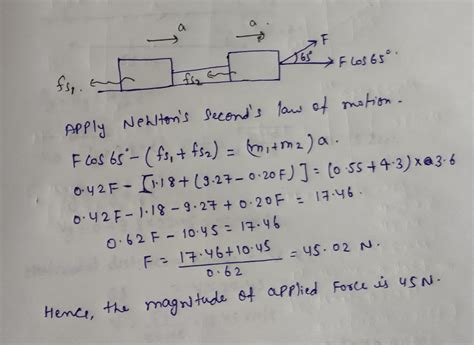 a
a
F
65°
F cos 65°.
fs1
fs2
Apply Newton's second's law of motion.
F cos 65° - (fs1 + fs2) = (m1 + m2) a.
0.42F - [1.18 + (9.27 - 0.20F)] = (0.55 + 4.3) × 3.6
0.42F - 1.18 - 9.27 + 0.20F = 17.46.
0.62F - 10.45 = 17.46
F = 17.46 + 10.45 / 0.62 = 45.02 N.
Hence, the magnitude of applied Force is 45N.